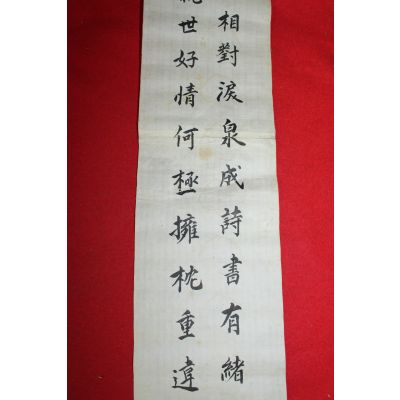 相對淚泉成詩書有緒
世好情何極擁枕重違